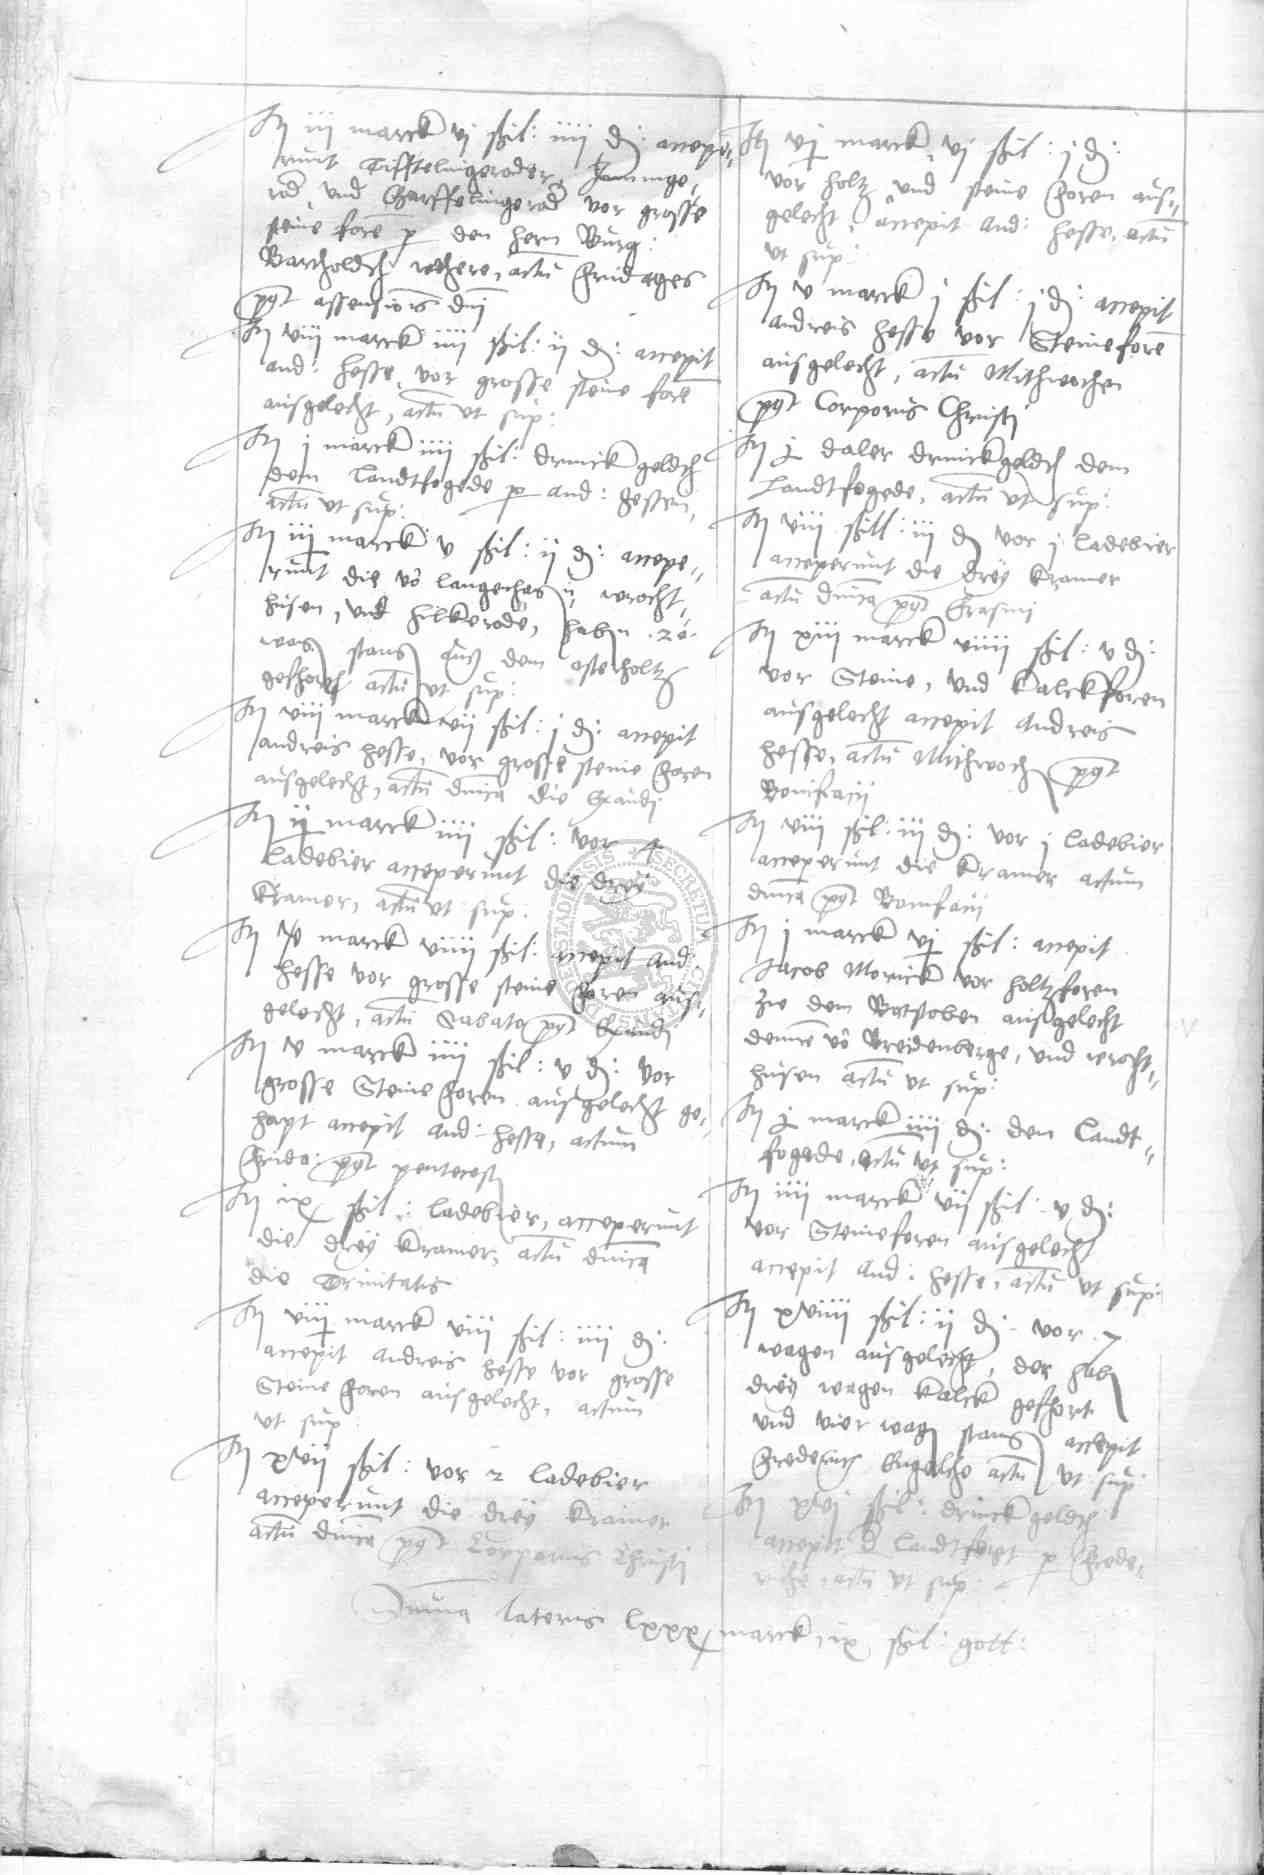 It iii marck vj ßil: iiij d: accepe„
runt Tifftelingeroder, Immige„
rod, und Gerffelingerod vor grosse
steine fore p den hern Burg:
Bartholdt wehere, actu Fridages
post assensionis dni
It viii marck iiij ßil: ij d: accepit
and: Hesse, vor grosse steine fore
ausgelecht, actu ut sup:
It j marck iiij ßil: drinck geldt
dem Landtfogede p and: Hessen,
actu ut sup:
It iij marck v ßil: ij d: accepe„
runt die vo langenhag , wrocht„
husen, und hilkerode, habn .20.
wag stans auß dem osterholtz
gefhort actu ut sup:
It viii marck vij ßil: j d: accepit
andreis Hesse, vor grosse steine foren
ausgelecht, actu dnica die Exaudi
It ij marck iiij ßil: vor 4
Ladebier acceperunt die dreÿ
Kramer, actu ut sup:
It marck viiij ßil: accepit And:
Hesse vor grosse steine foren aus„
gelecht, actu Sabato post Exaudi
It v marck iiij ßil: v d: vor
grosse Steine foren ausgelecht ge„
hapt accepit And: Hesse, actum
Frida: post pentecost
It ix ßil: Ladebier, acceperunt
die dreÿ Kramer, actu dnica
die Trinitatis
It viij marck viii ßil: iiij d:
accepit Andreis Hesse vor grosse
Steine foren ausgelecht, actum
ut sup:
It xvij ßil: vor 2 Ladebier
acceperunt die dreÿ Kramer
actu dnica post Corporis Christi
It vj marck, vj ßil: j d:
vor holtz und steine foren aus„
gelecht, accepit And: Hesse, actu
ut sup:
It v marck j ßil: j d: accepit
andreis Hesse vor Steinefore
ausgelecht, actu Mithwochen
post Corporis Christi
It j daler drinckgeldt dem
Landtfogede, actu ut sup:
It viii ßill: iij d vor j Ladebier
acceperunt die dreÿ Kramer
actu dnica post Erasmi
It xiii marck viiij ßil: v d:
vor Steine, und Kalckforen
ausgelecht accepit Andreis
Hesse, actu Mithwoch post
Bonifacij
It viii ßil: iij d: vor j Ladebier
acceperunt die Kramer actum
dnica post Bonifacij
It j marck vj ßil: accepit
Jacob Monick vor holtzforen
Zu dem Batstoben ausgelecht
denne vo Breidenberge, und wrocht„
husen actu ut sup:
It j marck iiij d: den Landt„
fogede, actu ut sup:
It iiij marck vij ßil: v d:
vor Steineforen ausgelecht
accepit And: Hesse, actu ut sup:
It xviiij ßil: ij d: vor .7.
wagen ausgelecht, der hab
dreÿ wagen Kalck gefhort
und vier wag stans accepit
Frederich Engelke actu ut sup
It xvj ßil: drinck geldt
accepit d Landtfoget p Frede„
riche, actu ut sup:
Suma lateris lxxx marck, ix ßil: gott:
SECRETUM CIVITATIS DUDERSTADIENSIS